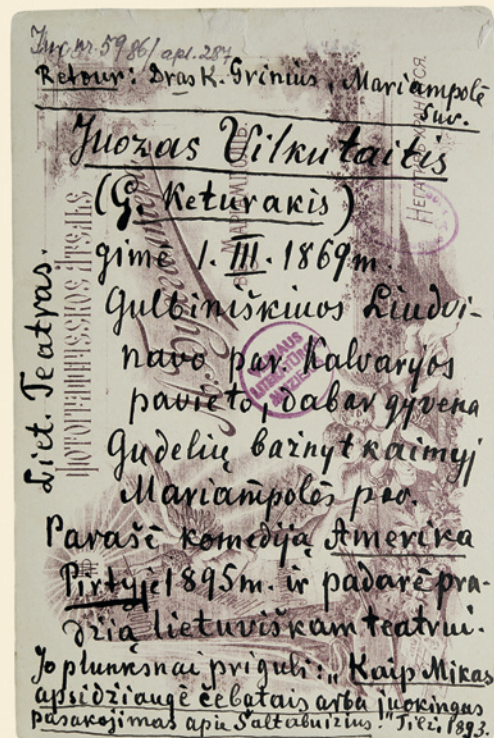 Inv. nr. 5986/ apl. 287
Retour: Dras K. Grinius, Mariampolė
Suv.
Juozas Vilkutaitis
(G. Keturakis)
gimė 1. III. 1869 m.
Gulbiniškiuos Liudvi-
navo par. Kalvarijos
pavieto, dabar gyvena
Gudelių bažnytkaimyj
Mariampolės pav.
Parašė komediją Amerika
Pirtyje 1895 m. ir padarė pra-
džią lietuviškam teatrui.
Jo plunksnai priguli: „Kaip Mikas
apsidžiaugė čebatais arba juokingas
pasakojimas apie Saltabuizius." Tilž. 1893.
Liet. Teatras.
МАРІАМПОЛЬ
НЕГАТИВЫ ХРАНЯТСЯ
LITERATŪROS